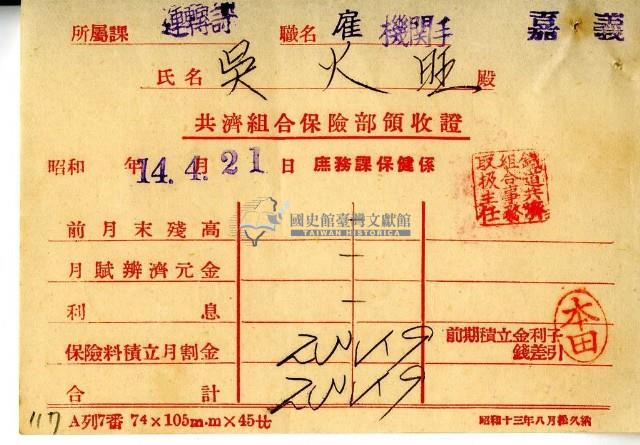 所屬課 運轉課 職名 雇 機関手 嘉義
氏名 吳火旺 殿
共濟組合保險部領收證
昭和 年 14.4.21 月 日 庶務課保健係
鐵道共濟組合事務取扱主任
國史館臺灣文獻館
TAIWAN HISTORICA
前月末殘高
月賦辨濟元金 —
利息 —
保險料積立月割金
前期積立金利子
錢差引
本田
合計
117 A列7番 74×105m.m×45廿 昭和十三年八月松久納